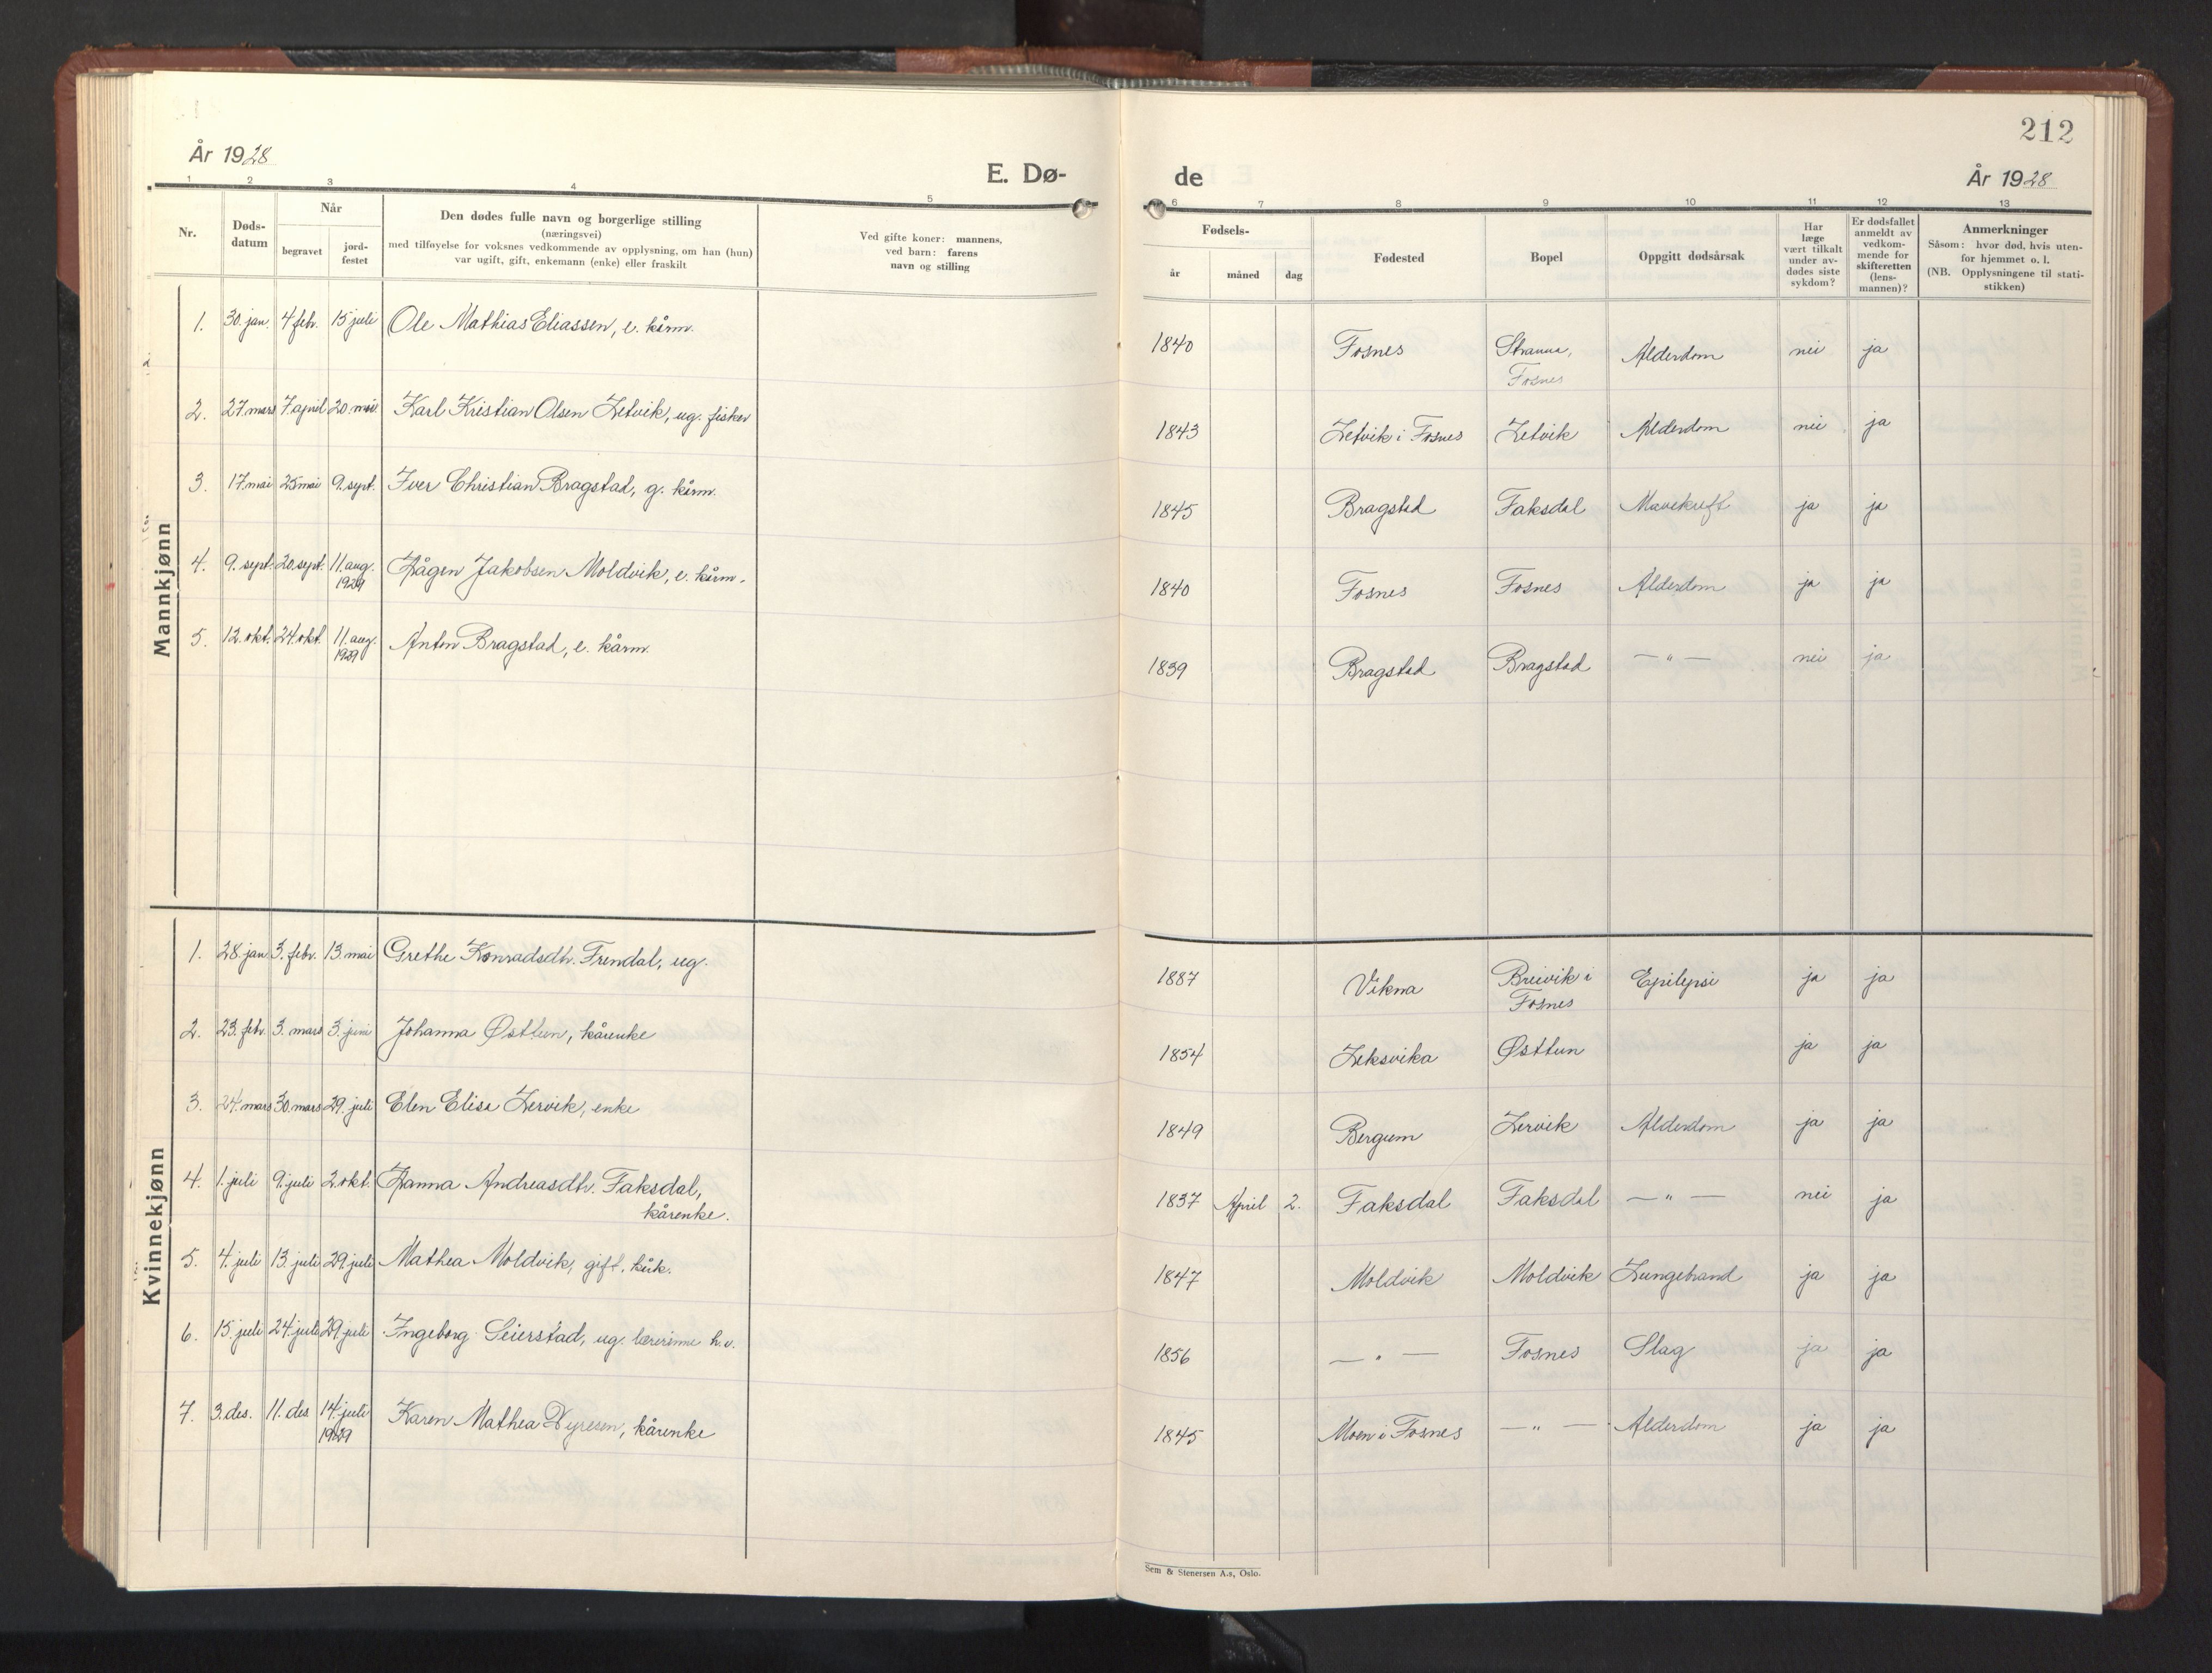 212
År 1928
E. Dø-
de
År 1928
1 2 3 4 5 6 7 8 9 10 11 12 13
Nr.
Døds-
datum
Når
begravet
jord-
festet
Den dødes fulle navn og borgerlige stilling
(næringsvei)
med tilføyelse for voksnes vedkommende av opplysning, om han (hun)
var ugift, gift, enkemann (enke) eller fraskilt
Ved gifte koner: mannens,
ved barn: farens
navn og stilling
Fødsels-
år måned dag
Fødested
Bopel
Oppgitt dødsårsak
Har
læge
vært tilkalt
under av-
dødes siste
sykdom?
Er dødsfallet
anmeldt av
vedkom-
mende for
skifteretten
(lens-
mannen)?
Anmerkninger
Såsom: hvor død, hvis uten-
for hjemmet o. l.
(NB. Opplysningene til stati-
stikken)
Mannkjønn
1. 30. jan. 4 feb. 15 juli Ole Mathias Eliassen, e. kårm. 1840 Fosnes Stranna, Alderdom nei ja
Fosnes
2. 27. mars 7. april 20. mai Karl Kristian Olsen Letvik, ug. fisker 1843 Letvik i Fosnes Letvik Alderdom nei ja
3. 17. mai 25 mai 9. sept. Iver Christian Bragstad, g. kårm. 1845 Bragstad Faksdal Mavekreft ja ja
4. 9. sept. 20. sept. 11. aug. Hågen Jakobsen Moldvik, e. kårm. 1840 Fosnes Fosnes Alderdom ja ja
1929
5. 12. okt. 24. okt. 11. aug. Anton Bragstad, e. kårm. 1839 Bragstad Bragstad — " — nei ja
1929
Kvinnekjønn
1. 28. jan 3. febr. 13. mai Grethe Konradsdtr. Frendal, ug. 1887 Vikna Breivik i Epilepsi ja ja
Fosnes
2. 23. feb. 3. mars 3. juni Johanna Østtun, kårenke 1854 Leksvika Østtun ja ja
3. 24. mars 30. mars 29. juli Elen Elisa Lervik, enke 1849 Bergum Lervik Alderdom ja ja
4. 1. juli 9. juli 2. okt. Hanna Andreasdtr. Faksdal, 1837 April 2. Faksdal Faksdal — " — nei ja
kårenke.
5. 4. juli 13. juli 29. juli Mathea Moldvik, gift. kårk. 1847 Moldvik Moldvik Lungebrand ja ja
6. 15. juli 24. juli 29. juli Ingeborg Seierstad, ug. lærerinne h.v. 1856 — " — Fosnes Slag ja ja
7. 3. des. 11. des 14. juli Karen Mathea Dyresen, kårenke 1845 Moen i Fosnes — " — Alderdom ja ja
1929
Sem & Stenersen A.s, Oslo.